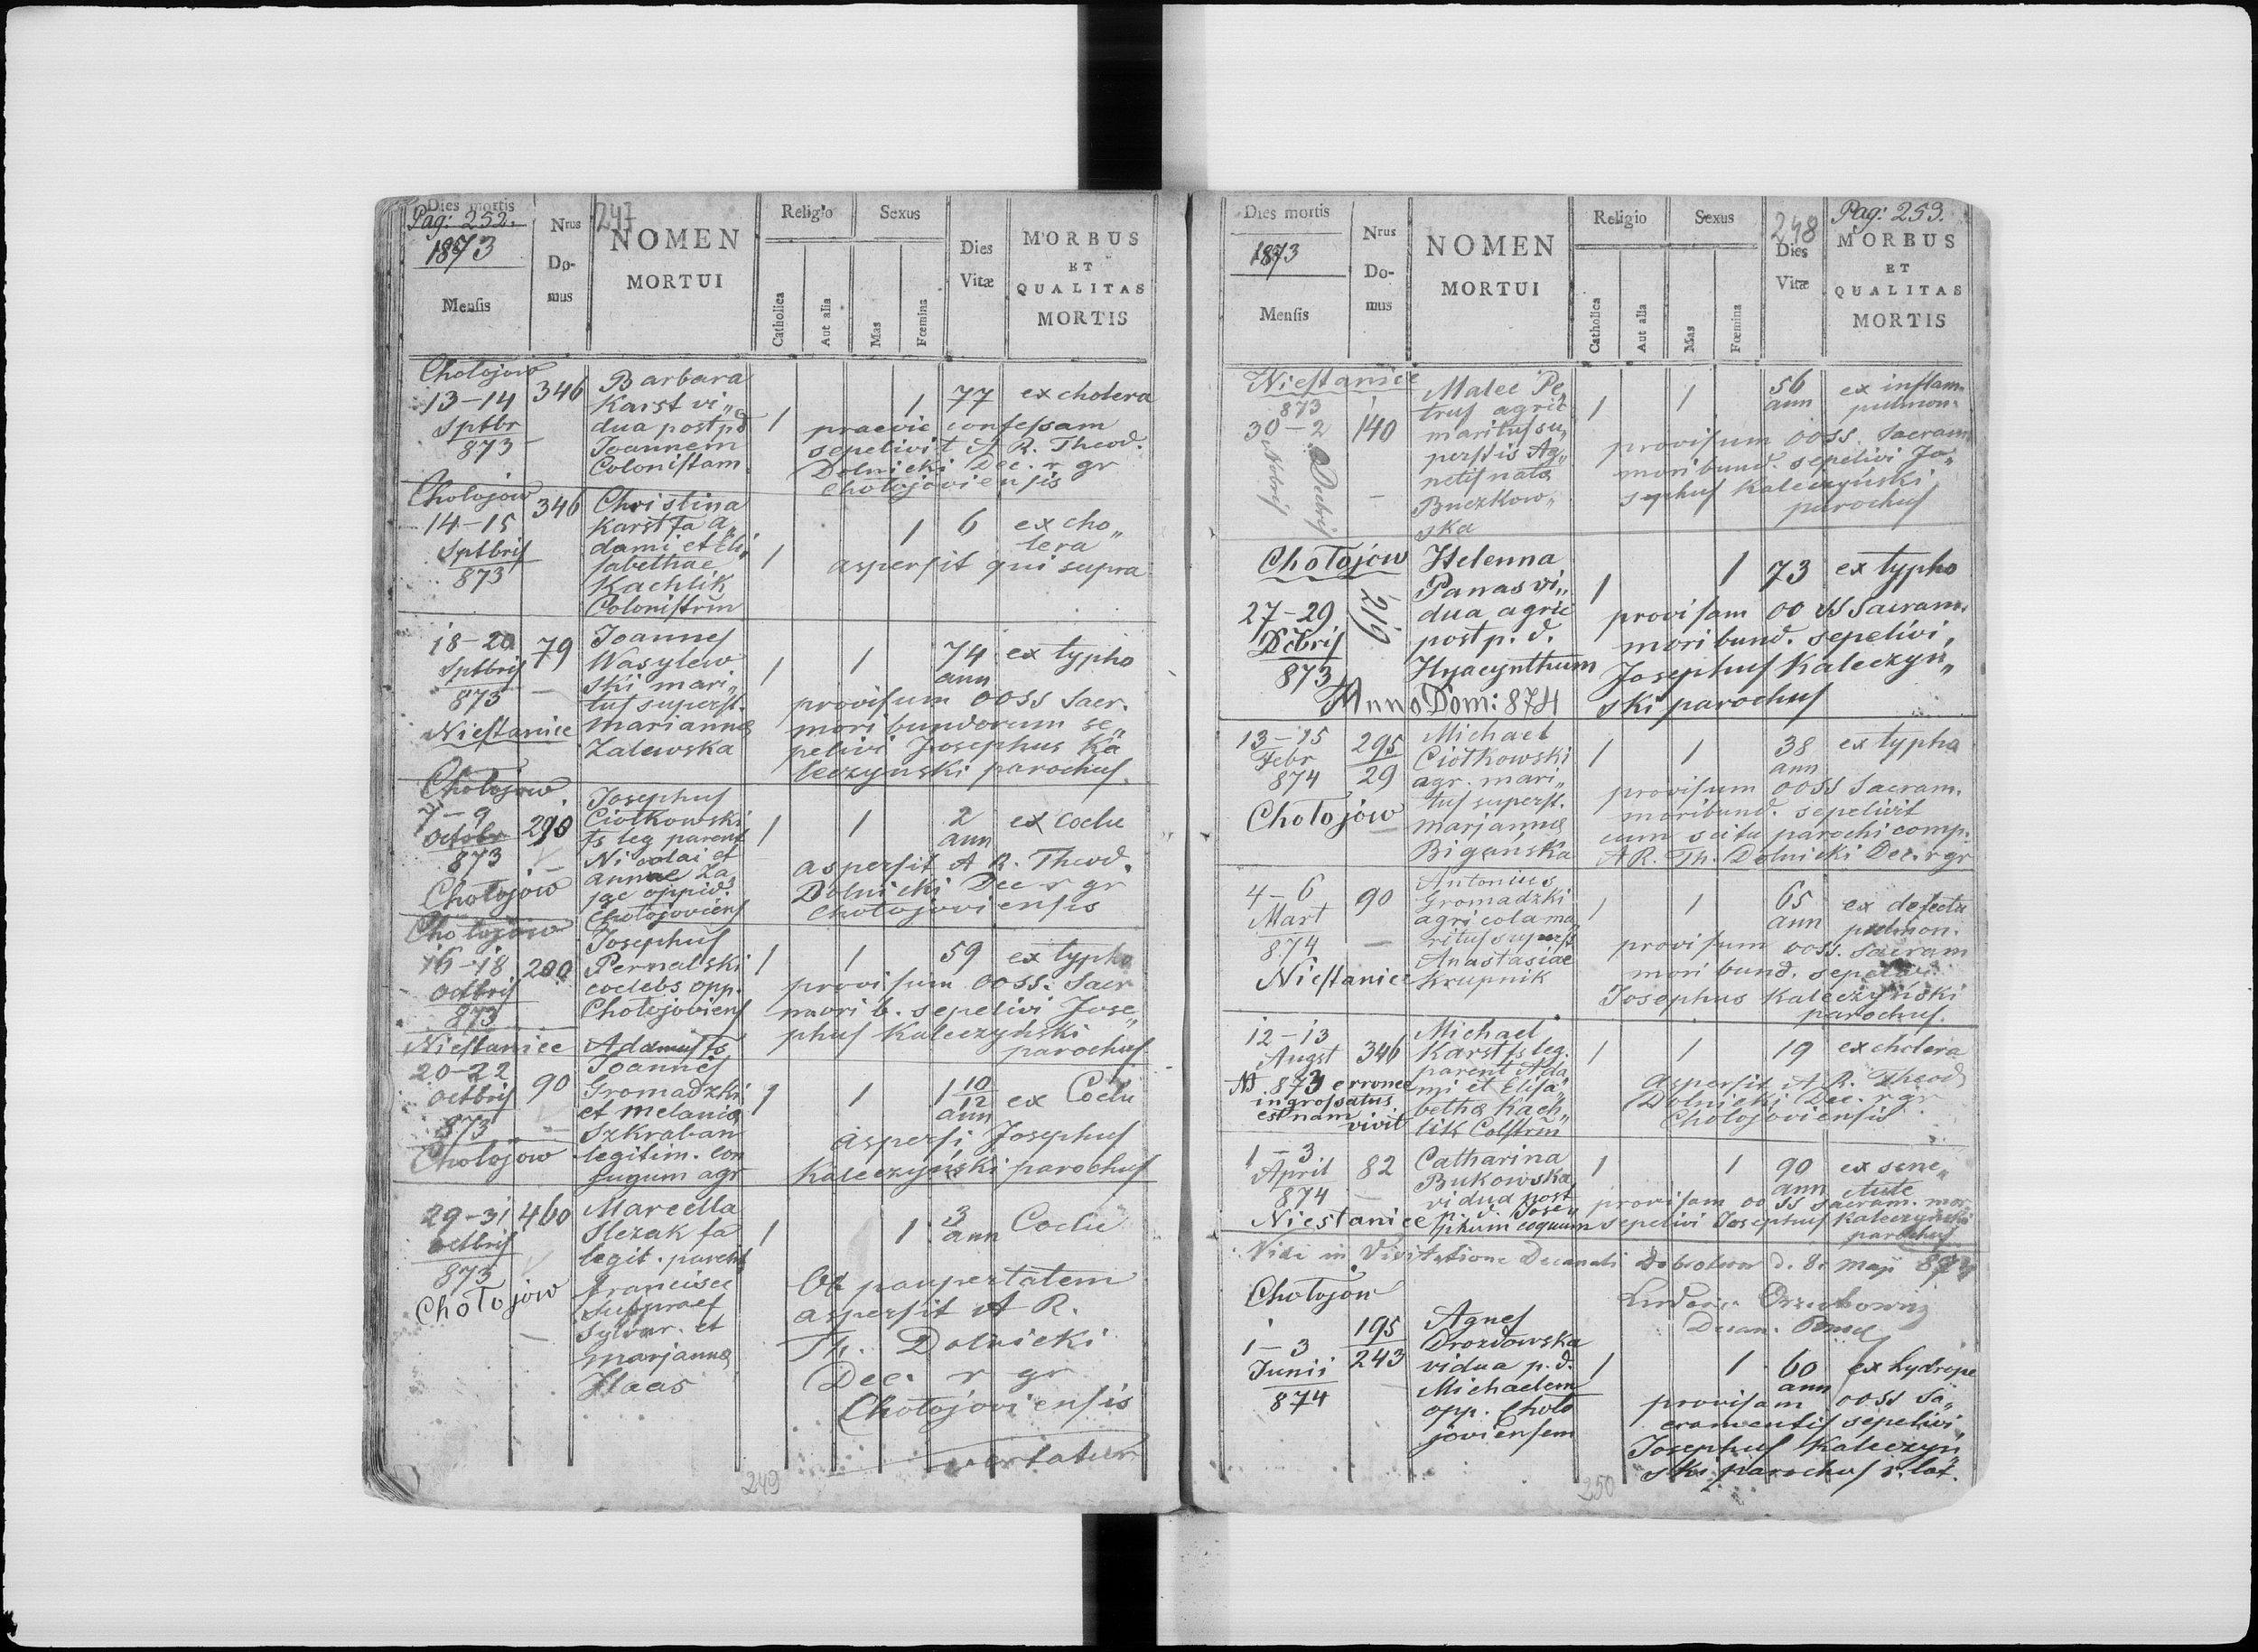 Dies mortis
Pag: 252.
1873
Mensis
Nrus
Do-
mus
247
NOMEN
MORTUI
Religio
Catholica
Aut alia
Sexus
Mas
Fœmina
Dies
Vitæ
MORBUS
ET
QUALITAS
MORTIS
Chołojow
13-14
Sptbr
873
346
Barbara
Karst vi„
dua post pd
Joannem
Colonistam
1
1
77
ex cholera
praevie confessam
sepelivit A R. Theod.
Dolnicki Dec. r gr
Chołojoviensis
Chołojow
14-15
Sptbris
873
346
Christina
Karst fa A„
dami et Eli„
sabethae
Kachlik
Colonistrm
1
1
6
ex cho„
lera
aspersit qui supra
18-20
Sptbris
873
Niestanice
79
Joannes
Wasylew
ski mari„
tus superst.
Mariannæ
Zalewska
1
1
74
ann
ex typho
provisum OOSS Sacr.
moribundorum se„
pelivi Josephus Ka
leczynski parochus.
Chołojow
7-9
Octobr
873
Chołojow
290
Josephus
Ciotkowski
fs leg parent
Nicolai et
Annae Za
jac oppid.
Chołojoviens
1
1
2
ann
ex Coclu
aspersit A R. Theod.
Dolnicki Dec r gr
Chołojoviensis
Chołojow
16-18
Octbris
873
200
Josephus
Pernalski
coelebs opp.
Chołojoviens
1
1
59
ex typho
provisum OOSS. Sacr
morib. sepelivi Jose„
phus Kaleczyński
parochus
Niestanice
20-22
Octbris
873
Chołojow
90
Adamus fs
Joannis
Gromadzki
et Melaniæ
Szkraban
legitim. con
jugum agr
1
1
1 10/12
ann
ex Coclu
aspersi Josephus
Kaleczyński parochus
29-31
Octbris
873
Chołojow
460
Marcella
Slezak fa
legit. parent
Francisci
Sylvar. et
Marjannæ
Haas
1
1
3
ann
Coclu
Ob paupertatem
aspersit A R.
Th. Dolnicki
Dec. r gr
Chołojoviensis
vertatur
249
Dies mortis
1873
Mensis
Nrus
Do-
mus
NOMEN
MORTUI
Religio
Catholica
Aut alia
Sexus
Mas
Fœmina
248
Dies
Vitæ
Pag: 253.
MORBUS
ET
QUALITAS
MORTIS
Niestanice
873
30-2
Novbris
Decbris
140
Malec Pe„
trus agric
maritus su„
perstis Ag„
netis nata
Buczkow„
ska
1
1
56
ann
ex inflam
pulmon.
provisum OOSS. Sacram
moribund. sepelivi Jo„
sephus Kaleczyński
parochus
Chołojow
27-29
Dcbris
873
219
Helenna
Panas vi„
dua agric
post p. d.
Hyacynthum
1
1
73
ex typho
provisam OO SS Sacram.
moribund. sepelivi
Josephus Kaleczyn„
ski parochus
Anno Dom: 874
13-15
Febr
874
Chołojow
295
29
Michael
Ciotkowski
agr. mari„
tus superst.
Marjannæ
Biganska
1
1
38
ann
ex typho
provisum OOSS Sacram.
moribund. sepelivit
cum scitu parochi comp.
A R. Th. Dolnicki Dec. r gr
4-6
Mart
874
Niestanice
90
Antonius
Gromadzki
agricola ma„
ritus superst
Anastasiae
Krupnik
1
1
65
ann
ex defectu
pulmon.
provisum OOSS. Sacram
moribund. sepelivi
Josephus Kaleczyński
parochus.
12-13
Augst
NB 873 erronee
ingrossatus
est nam vivit
346
Michael
Karst fs leg.
parent Ada
mi et Elisa„
bethæ Kach„
lik Colstrm
1
1
19
ex cholera
aspersit A R. Theod
Dolnicki Dec. r gr
Chołojoviensis
1-3
April
874
Niestanice
82
Catharina
Bukowska
vidua post
p. d. Jose„
phum coquum
1
1
90
ann
ex sene„
ctute
provisam OO SS Sacram. mor
sepelivi Josephus Kaleczyński
parochus
Vidi in Visitatione Decanali d. 8. Maji 874
Chołojow
1-3
Junii
874
195
243
Agnes
Drozdowska
vidua p. d.
Michaelem
opp. Choło
joviensem
1
1
60
ann
ex hydrope
provisam OOSS Sa„
cramentis sepelivi
Josephus Kaleczyn„
ski parochus r. lat.
250